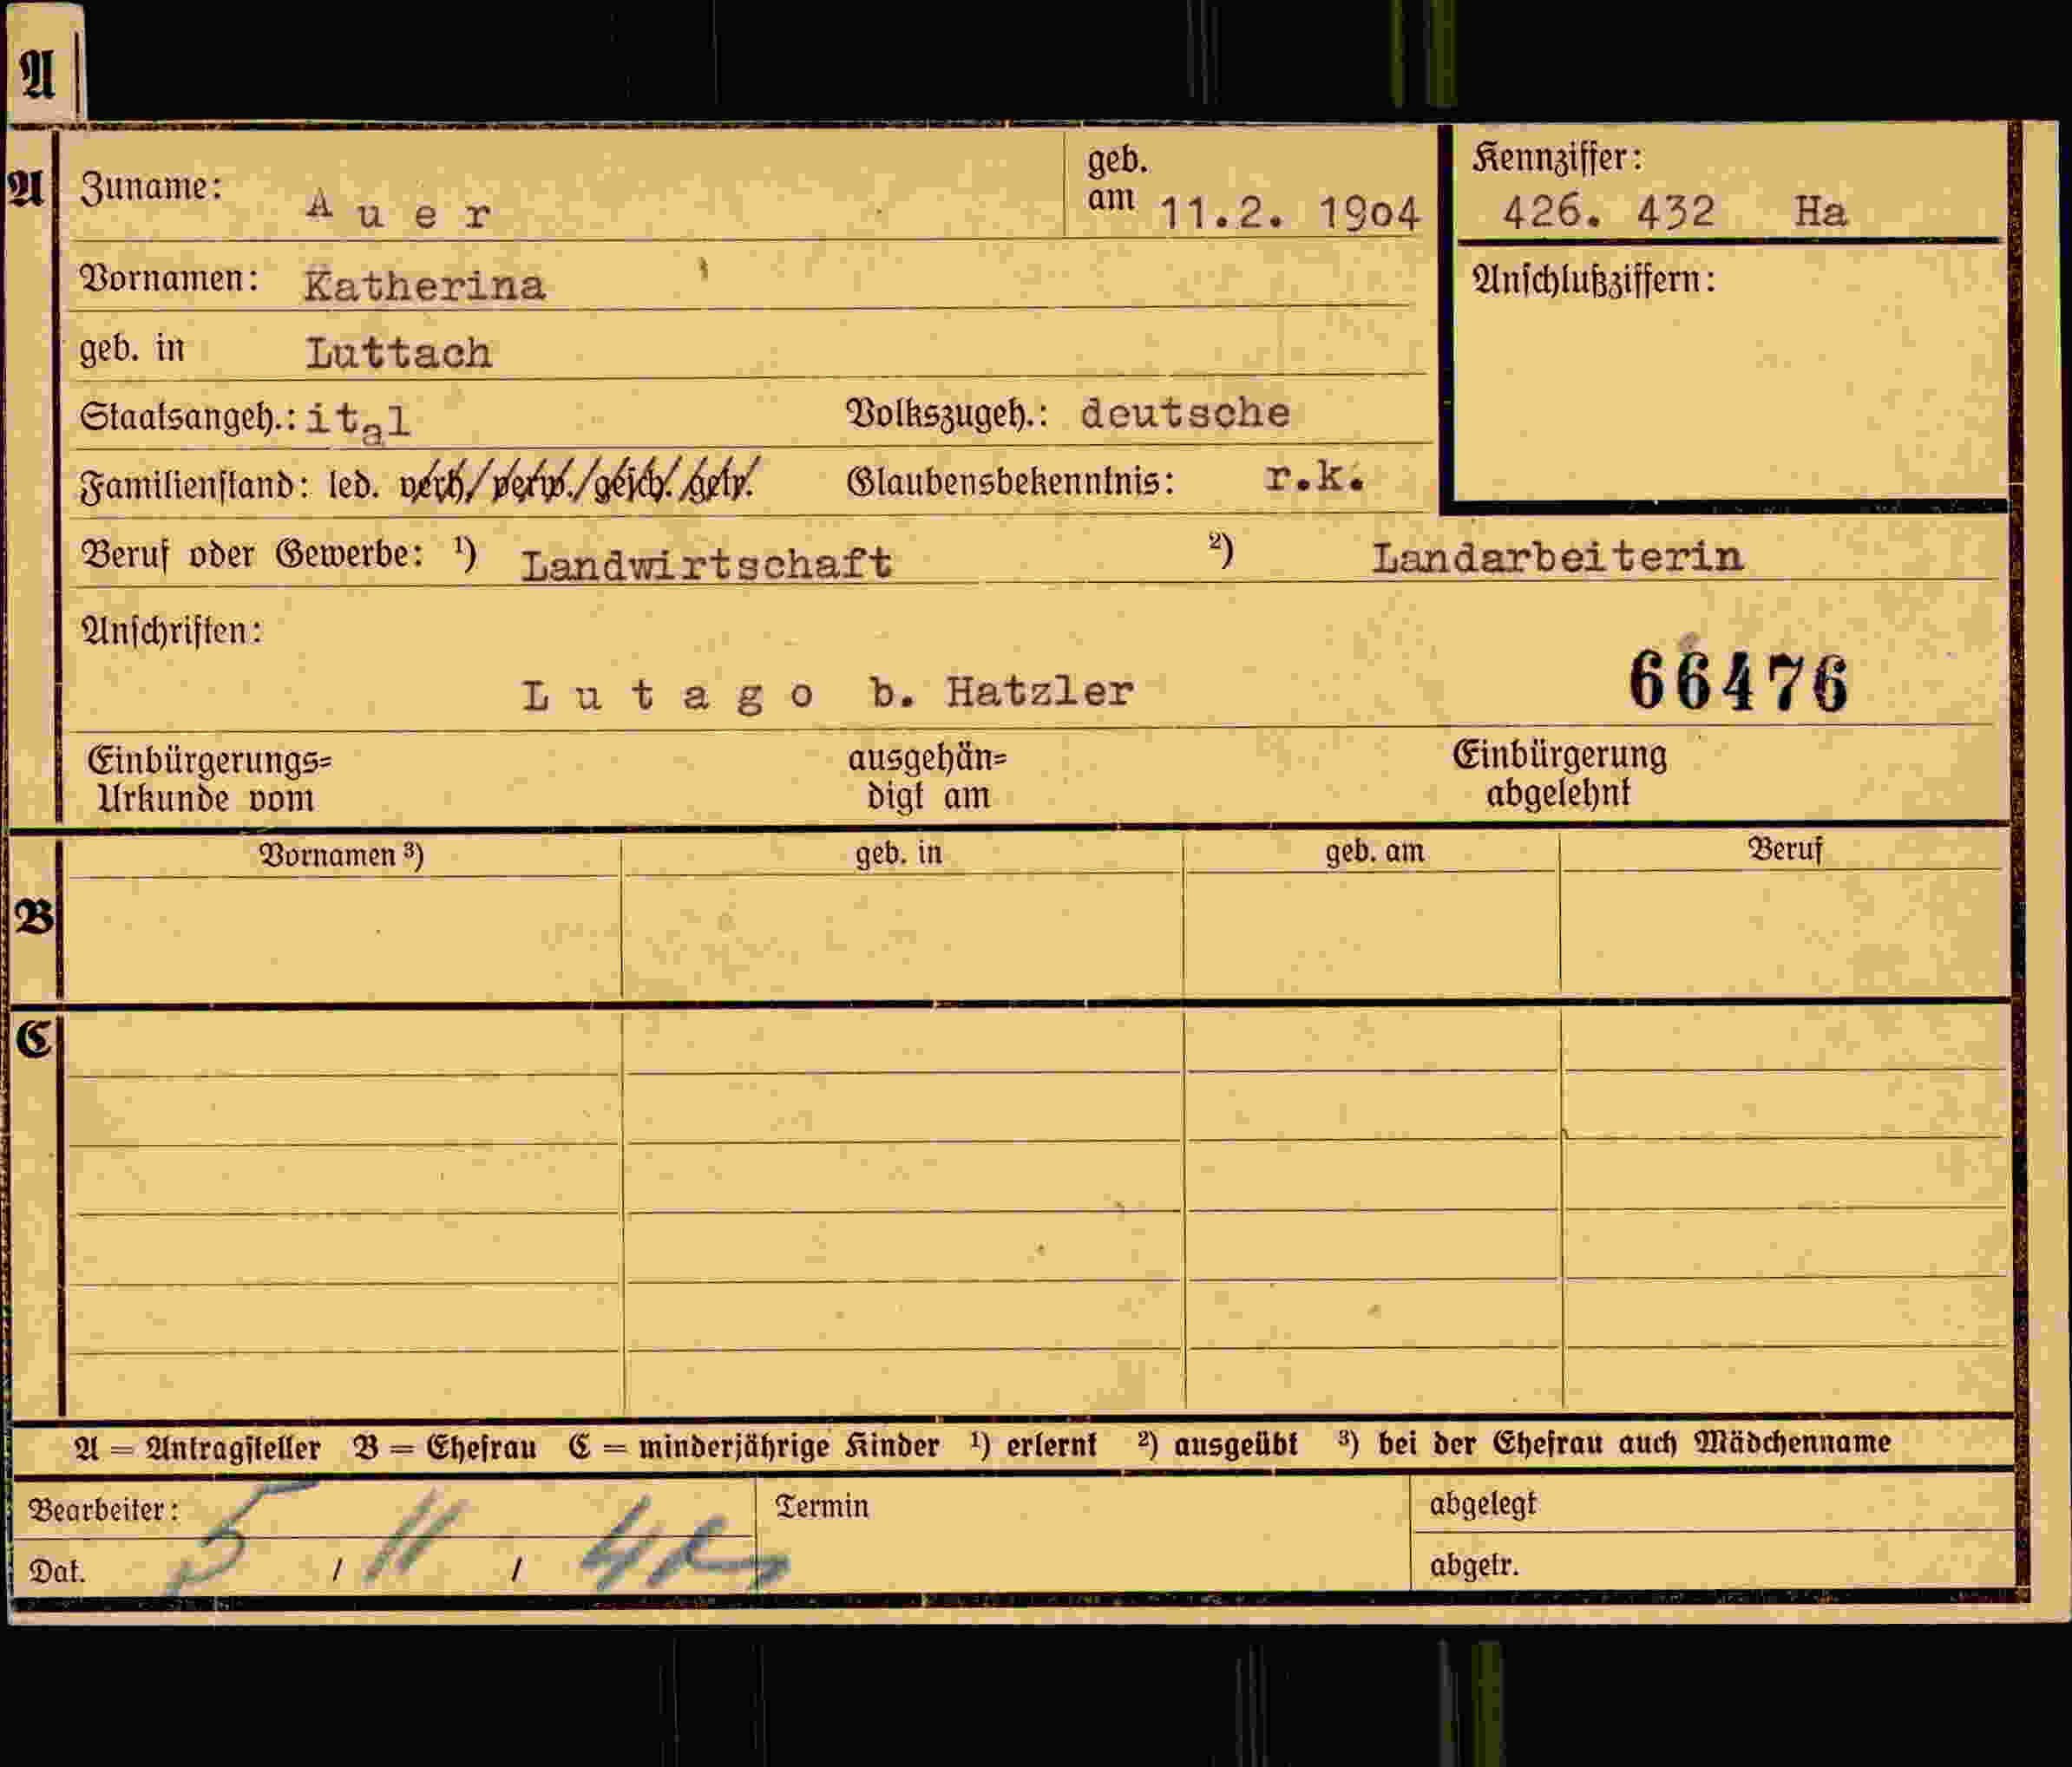 A
A Zuname: Auer geb. am 11.2. 1904 Kennziffer: 426. 432 Ha
Vornamen: Katherina Anschlußziffern:
geb. in Luttach
Staatsangeh.: ital Volkszugeh.: deutsche
Familienstand: led. verh./verw./gesch./getr. Glaubensbekenntnis: r.k.
Beruf oder Gewerbe: ¹) Landwirtschaft ²) Landarbeiterin
Anschriften:
Lutago b. Hatzler 66476
Einbürgerungs= ausgehän= Einbürgerung
Urkunde vom digt am abgelehnt
Vornamen ³) geb. in geb. am Beruf
B
C
A = Antragsteller B = Ehefrau C = minderjährige Kinder ¹) erlernt ²) ausgeübt ³) bei der Ehefrau auch Mädchenname
Bearbeiter: Termin abgelegt
Dat. 5 / 11 / 42 abgetr.